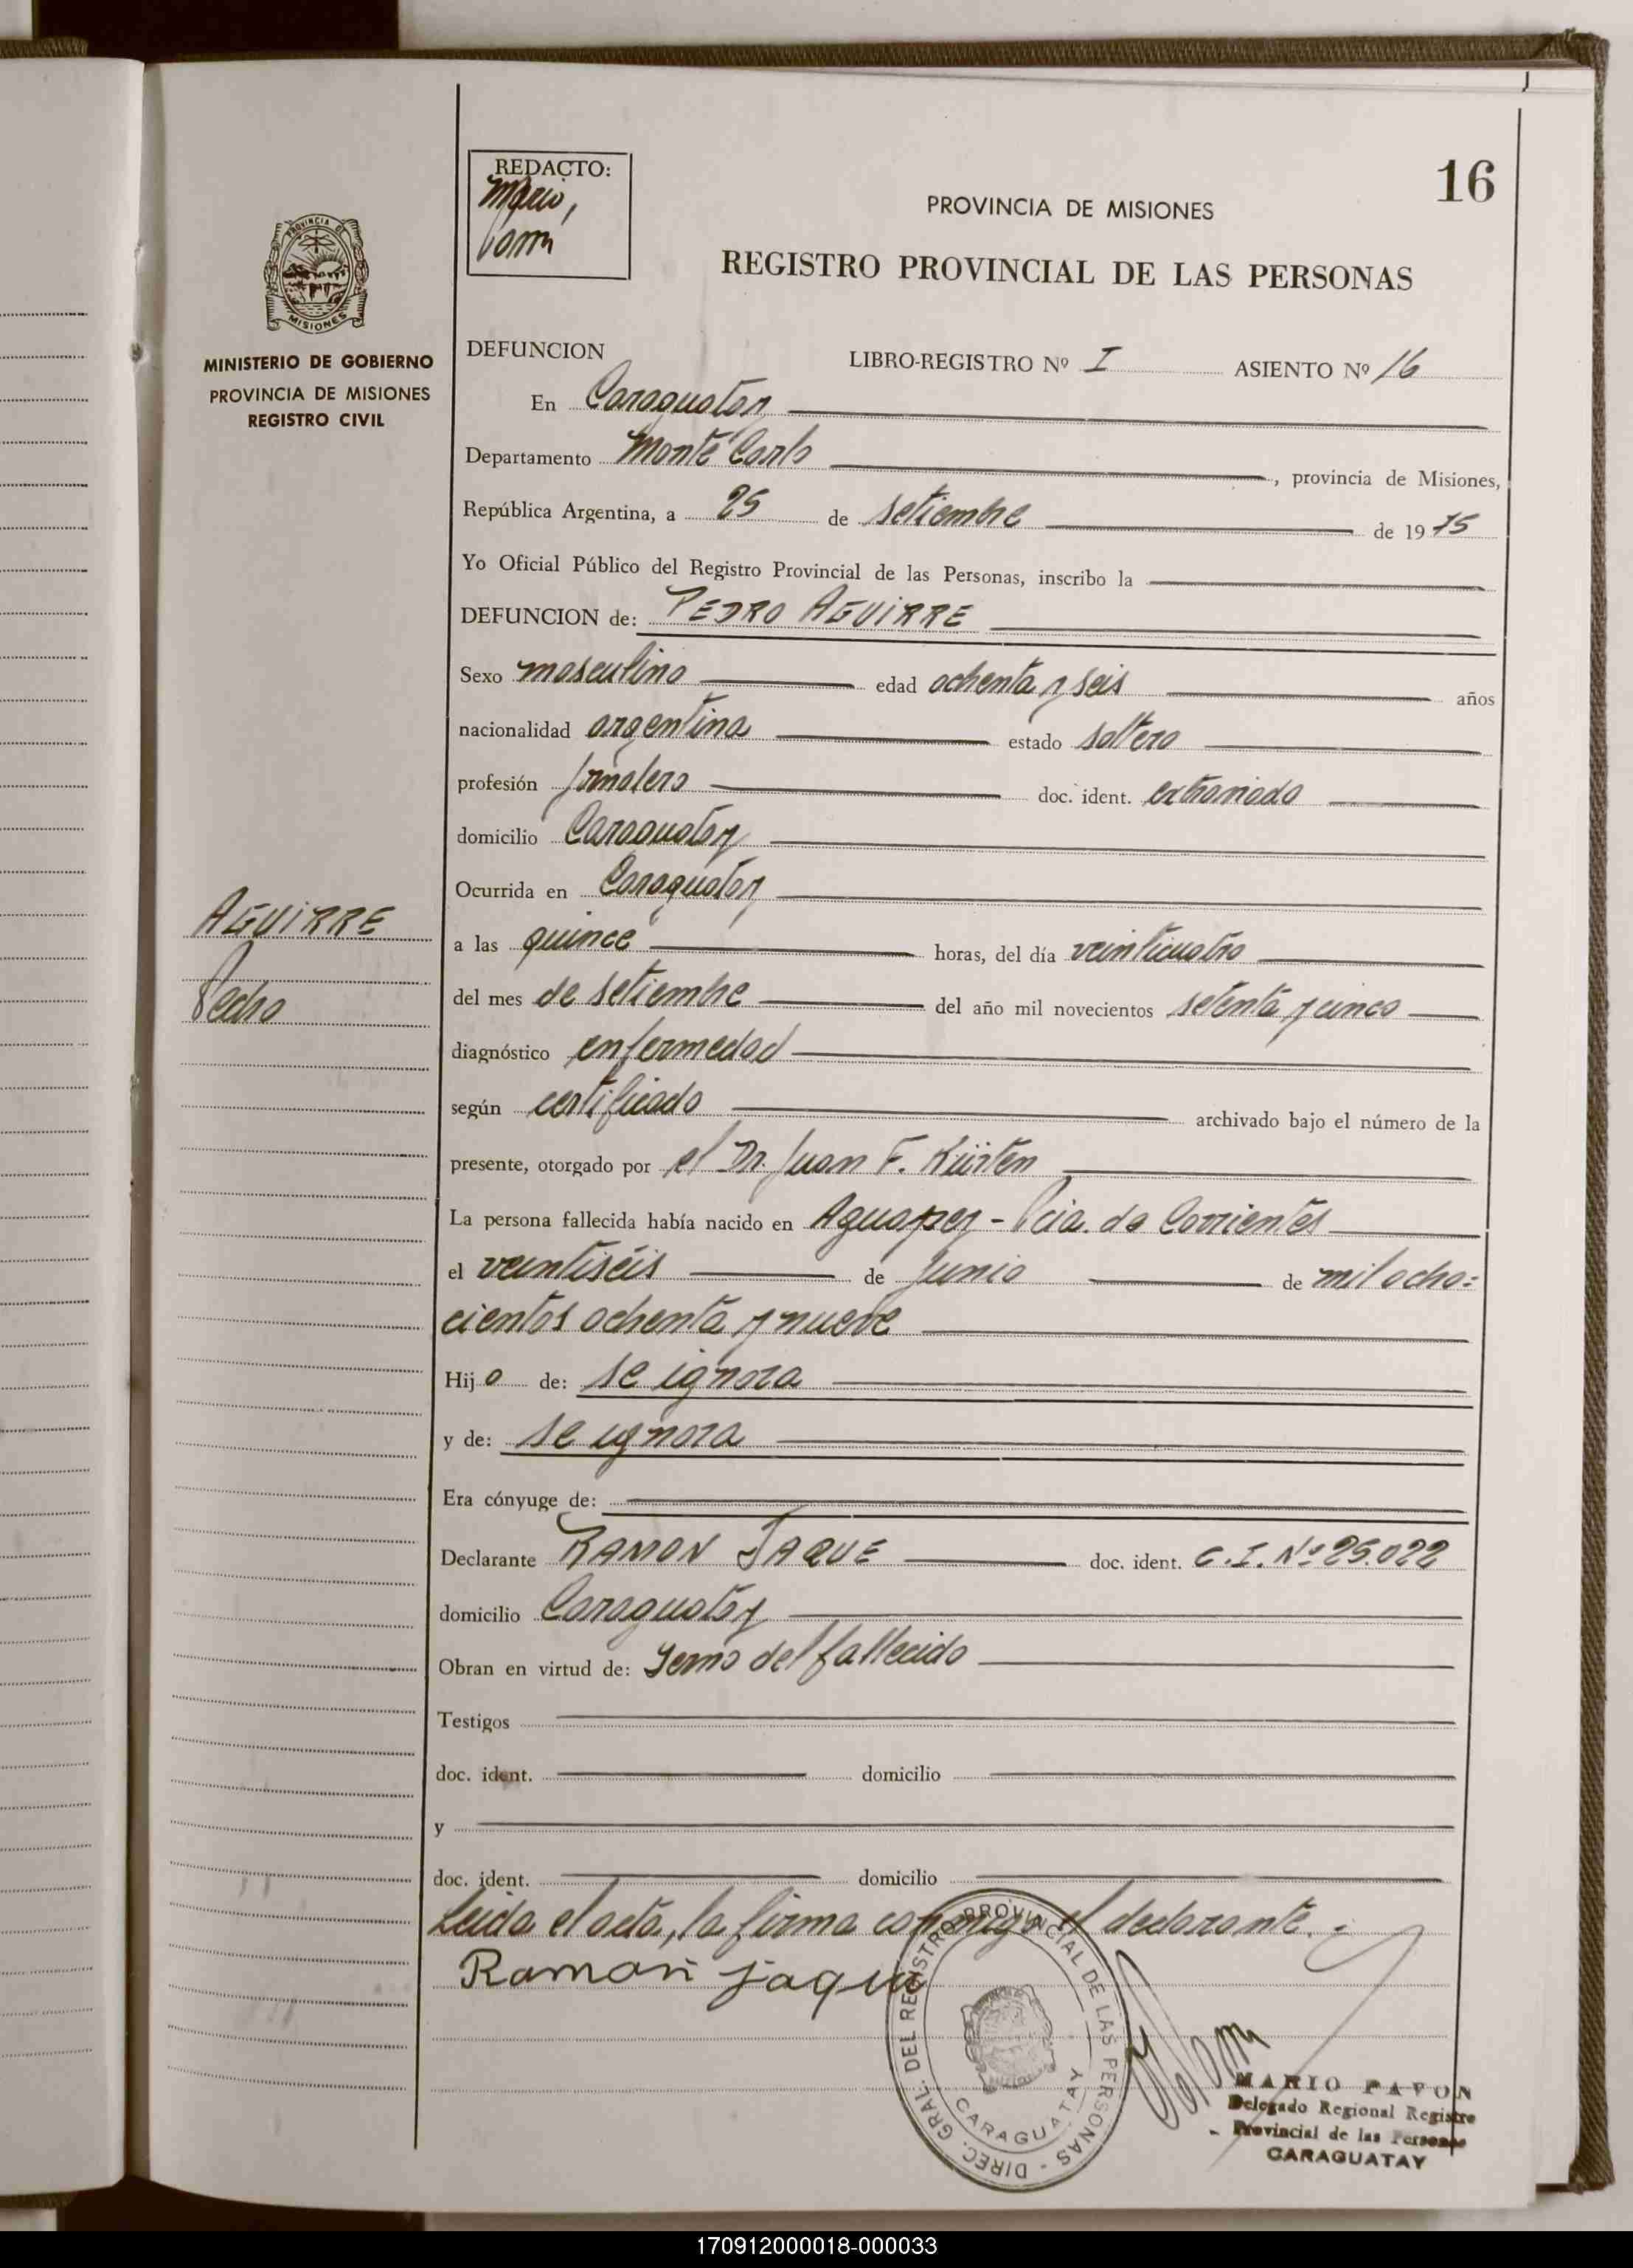 16
REDACTO:
Mario,
PROVINCIA DE MISIONES
REGISTRO PROVINCIAL DE LAS PERSONAS
PROVINCIA DE
MISIONES
MINISTERIO DE GOBIERNO
PROVINCIA DE MISIONES
REGISTRO CIVIL
DEFUNCION LIBRO-REGISTRO Nº I ASIENTO Nº 16
En Caraguatay
Departamento Monte Carlo, provincia de Misiones,
República Argentina, a 25 de setiembre de 1975
Yo Oficial Público del Registro Provincial de las Personas, inscribo la
DEFUNCION de: PEDRO AGUIRRE
Sexo masculino edad ochenta y seis años
nacionalidad argentina estado soltero
profesión jornalero doc. ident. extraviado
domicilio Caraguatay
Ocurrida en Caraguatay
AGUIRRE
Pedro
a las quince horas, del día veinticuatro
del mes de setiembre del año mil novecientos setenta y cinco
diagnóstico enfermedad
según certificado archivado bajo el número de la
presente, otorgado por el Dr. Juan F. Kürten
La persona fallecida había nacido en Aguapey - Pcia. de Corrientes
el veintiséis de junio de mil ocho=
cientos ochenta y nueve
Hijo de: se ignora
y de: se ignora
Era cónyuge de:
Declarante RAMON JAQUE doc. ident. C.I. Nº 25.022
domicilio Caraguatay
Obran en virtud de: Yerno del fallecido
Testigos
doc. ident. domicilio
y
doc. ident. domicilio
Leida el acta, la firma conmigo el declarante.-
Ramon jaque
DIREC. GRAL. DEL REGISTRO PROVINCIAL DE LAS PERSONAS -
CARAGUATAY
MARIO PAVON
Delegado Regional Registro
Provincial de las Personas
CARAGUATAY
170912000018-000033